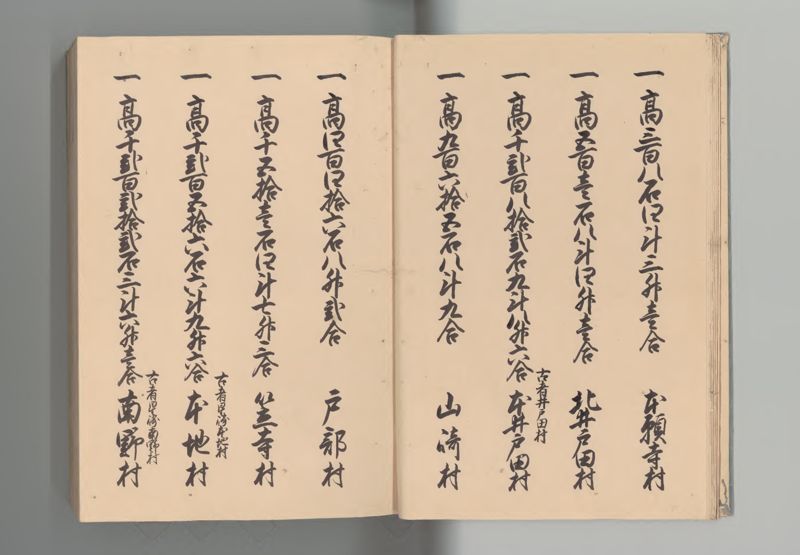 一 高三百八石四斗三升壱合 本願寺村
一 高五百壱石八斗四升壱合 北井戸田村
古者井戸田村
一 高千弐百八拾弐石九斗八升六合 本井戸田村
一 高九百六拾五石八斗九合 山崎村
一 高四百四拾六石八升弐合 戸部村
一 高千五拾壱石四斗七升三合 笠寺村
古者星崎本地村
一 高千弐百五拾六石六斗九升六合 本地村
古者星崎南野村
一 高千弐百弐拾弐石三斗六升壱合 南野村